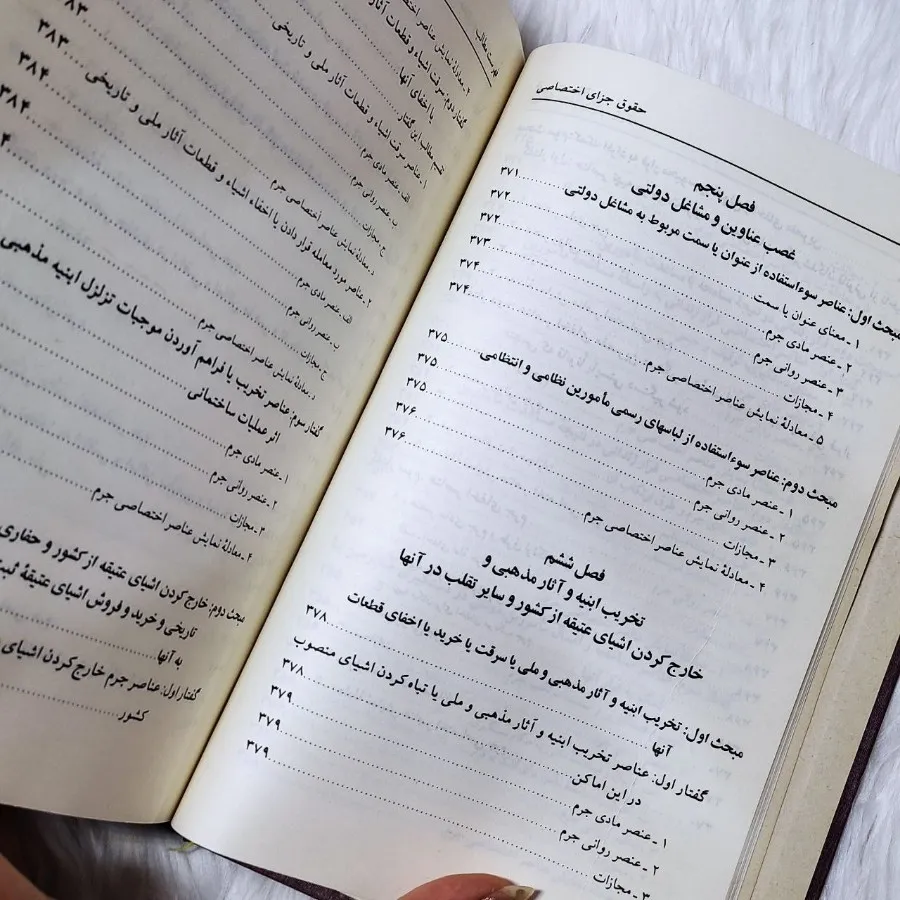 حقوق جزای اختصاصی
فصل پنجم
غصب عناوین و مشاغل دولتی
مبحث اول: عناصر سوءاستفاده از عنوان یا سمت مربوط به مشاغل دولتی ۳۷۱
۱ ـ معنای عنوان یا سمت ۳۷۲
۲ ـ عنصر مادی جرم ۳۷۲
۳ ـ عنصر روانی جرم ۳۷۳
۴ ـ مجازات ۳۷۴
۵ ـ معادلۀ نمایش عناصر اختصاصی جرم ۳۷۴
مبحث دوم: عناصر سوءاستفاده از لباسهای رسمی مأمورین نظامی و انتظامی ۳۷۵
۱ ـ عنصر مادی جرم ۳۷۵
۲ ـ عنصر روانی جرم ۳۷۵
۳ ـ مجازات ۳۷۶
۴ ـ معادلۀ نمایش عناصر اختصاصی جرم ۳۷۶
فصل ششم
تخریب ابنیه و آثار مذهبی و
خارج کردن اشیای عتیقه از کشور و سایر تقلب در آنها
مبحث اول: تخریب ابنیه و آثار مذهبی و ملی یا سرقت یا خرید یا اخفای قطعات
آنها ۳۷۸
گفتار اول: عناصر تخریب ابنیه و آثار مذهبی و ملی یا تباه کردن اشیای منصوب
در این اماکن ۳۷۸
۱ ـ عنصر مادی جرم ۳۷۹
۲ ـ عنصر روانی جرم ۳۷۹
۳ ـ مجازات ۳۷۹
فهرست مطالب
۴ ـ معادلۀ نمایش عناصر اختصاصی
گفتار دوم: سرقت اشیاء و قطعات آثار
یا اخفای آنها
تقسیم مطالب این گفتار ۳۸۳
۱ ـ عناصر سرقت اشیاء و قطعات آثار ملی و تاریخی ۳۸۳
الف. عنصر مادی جرم ۳۸۴
ب. عنصر روانی جرم ۳۸۴
ج. مجازات
د. معادلۀ نمایش عناصر اختصاصی جرم
۲ ـ عناصر مورد معامله قرار دادن یا اخفاء اشیاء و قطعات آثار ملی و تاریخی
الف. عنصر مادی جرم
ب. عنصر روانی جرم
ج. مجازات
د. معادلۀ نمایش عناصر اختصاصی جرم
گفتار سوم: عناصر تخریب یا فراهم آوردن موجبات تزلزل ابنیه مذهبی
اثر عملیات ساختمانی
۱ ـ عنصر مادی جرم
۲ ـ عنصر روانی جرم
۳ ـ مجازات
۴ ـ معادلۀ نمایش عناصر اختصاصی جرم
مبحث دوم: خارج کردن اشیای عتیقه از کشور و حفاری
تاریخی و خرید و فروش اشیای عتیقۀ
به آنها
گفتار اول: عناصر جرم خارج کردن اشیای
کشور